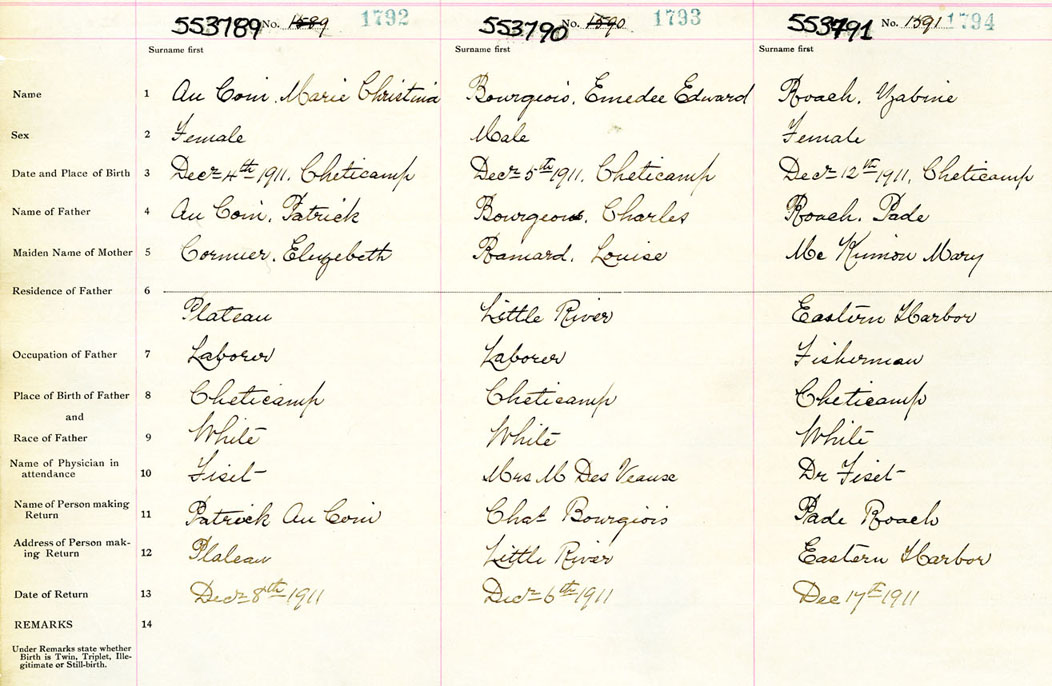 553789 No. 1589 1792 553790 No. 1590 1793 553791 No. 1591 1794
Surname first Surname first Surname first
Name 1 Au Coin, Marie Christina Bourgeois, Emedee Edward Roach, Yzabine
Sex 2 Female Male Female
Date and Place of Birth 3 Decr 4th 1911, Cheticamp Decr 5th 1911, Cheticamp Decr 12th 1911, Cheticamp
Name of Father 4 Au Coin, Patrick Bourgeois, Charles Roach, Pade
Maiden Name of Mother 5 Cormier, Elizebeth Ramard, Louise Mc Kinnon Mary
Residence of Father 6
Plateau Little River Eastern Harbor
Occupation of Father 7 Laborer Laborer Fisherman
Place of Birth of Father 8 Cheticamp Cheticamp Cheticamp
and
Race of Father 9 White White White
Name of Physician in
attendance 10 Fiset Mrs M Des Veause Dr Fiset
Name of Person making
Return 11 Patrick Au Coin Chas Bourgiois Pade Roach
Address of Person mak-
ing Return 12 Plateau Little River Eastern Harbor
Date of Return 13 Decr 8th 1911 Decr 6th 1911 Dec 17th 1911
REMARKS 14
Under Remarks state whether
Birth is Twin, Triplet, Ille-
gitimate or Still-birth.